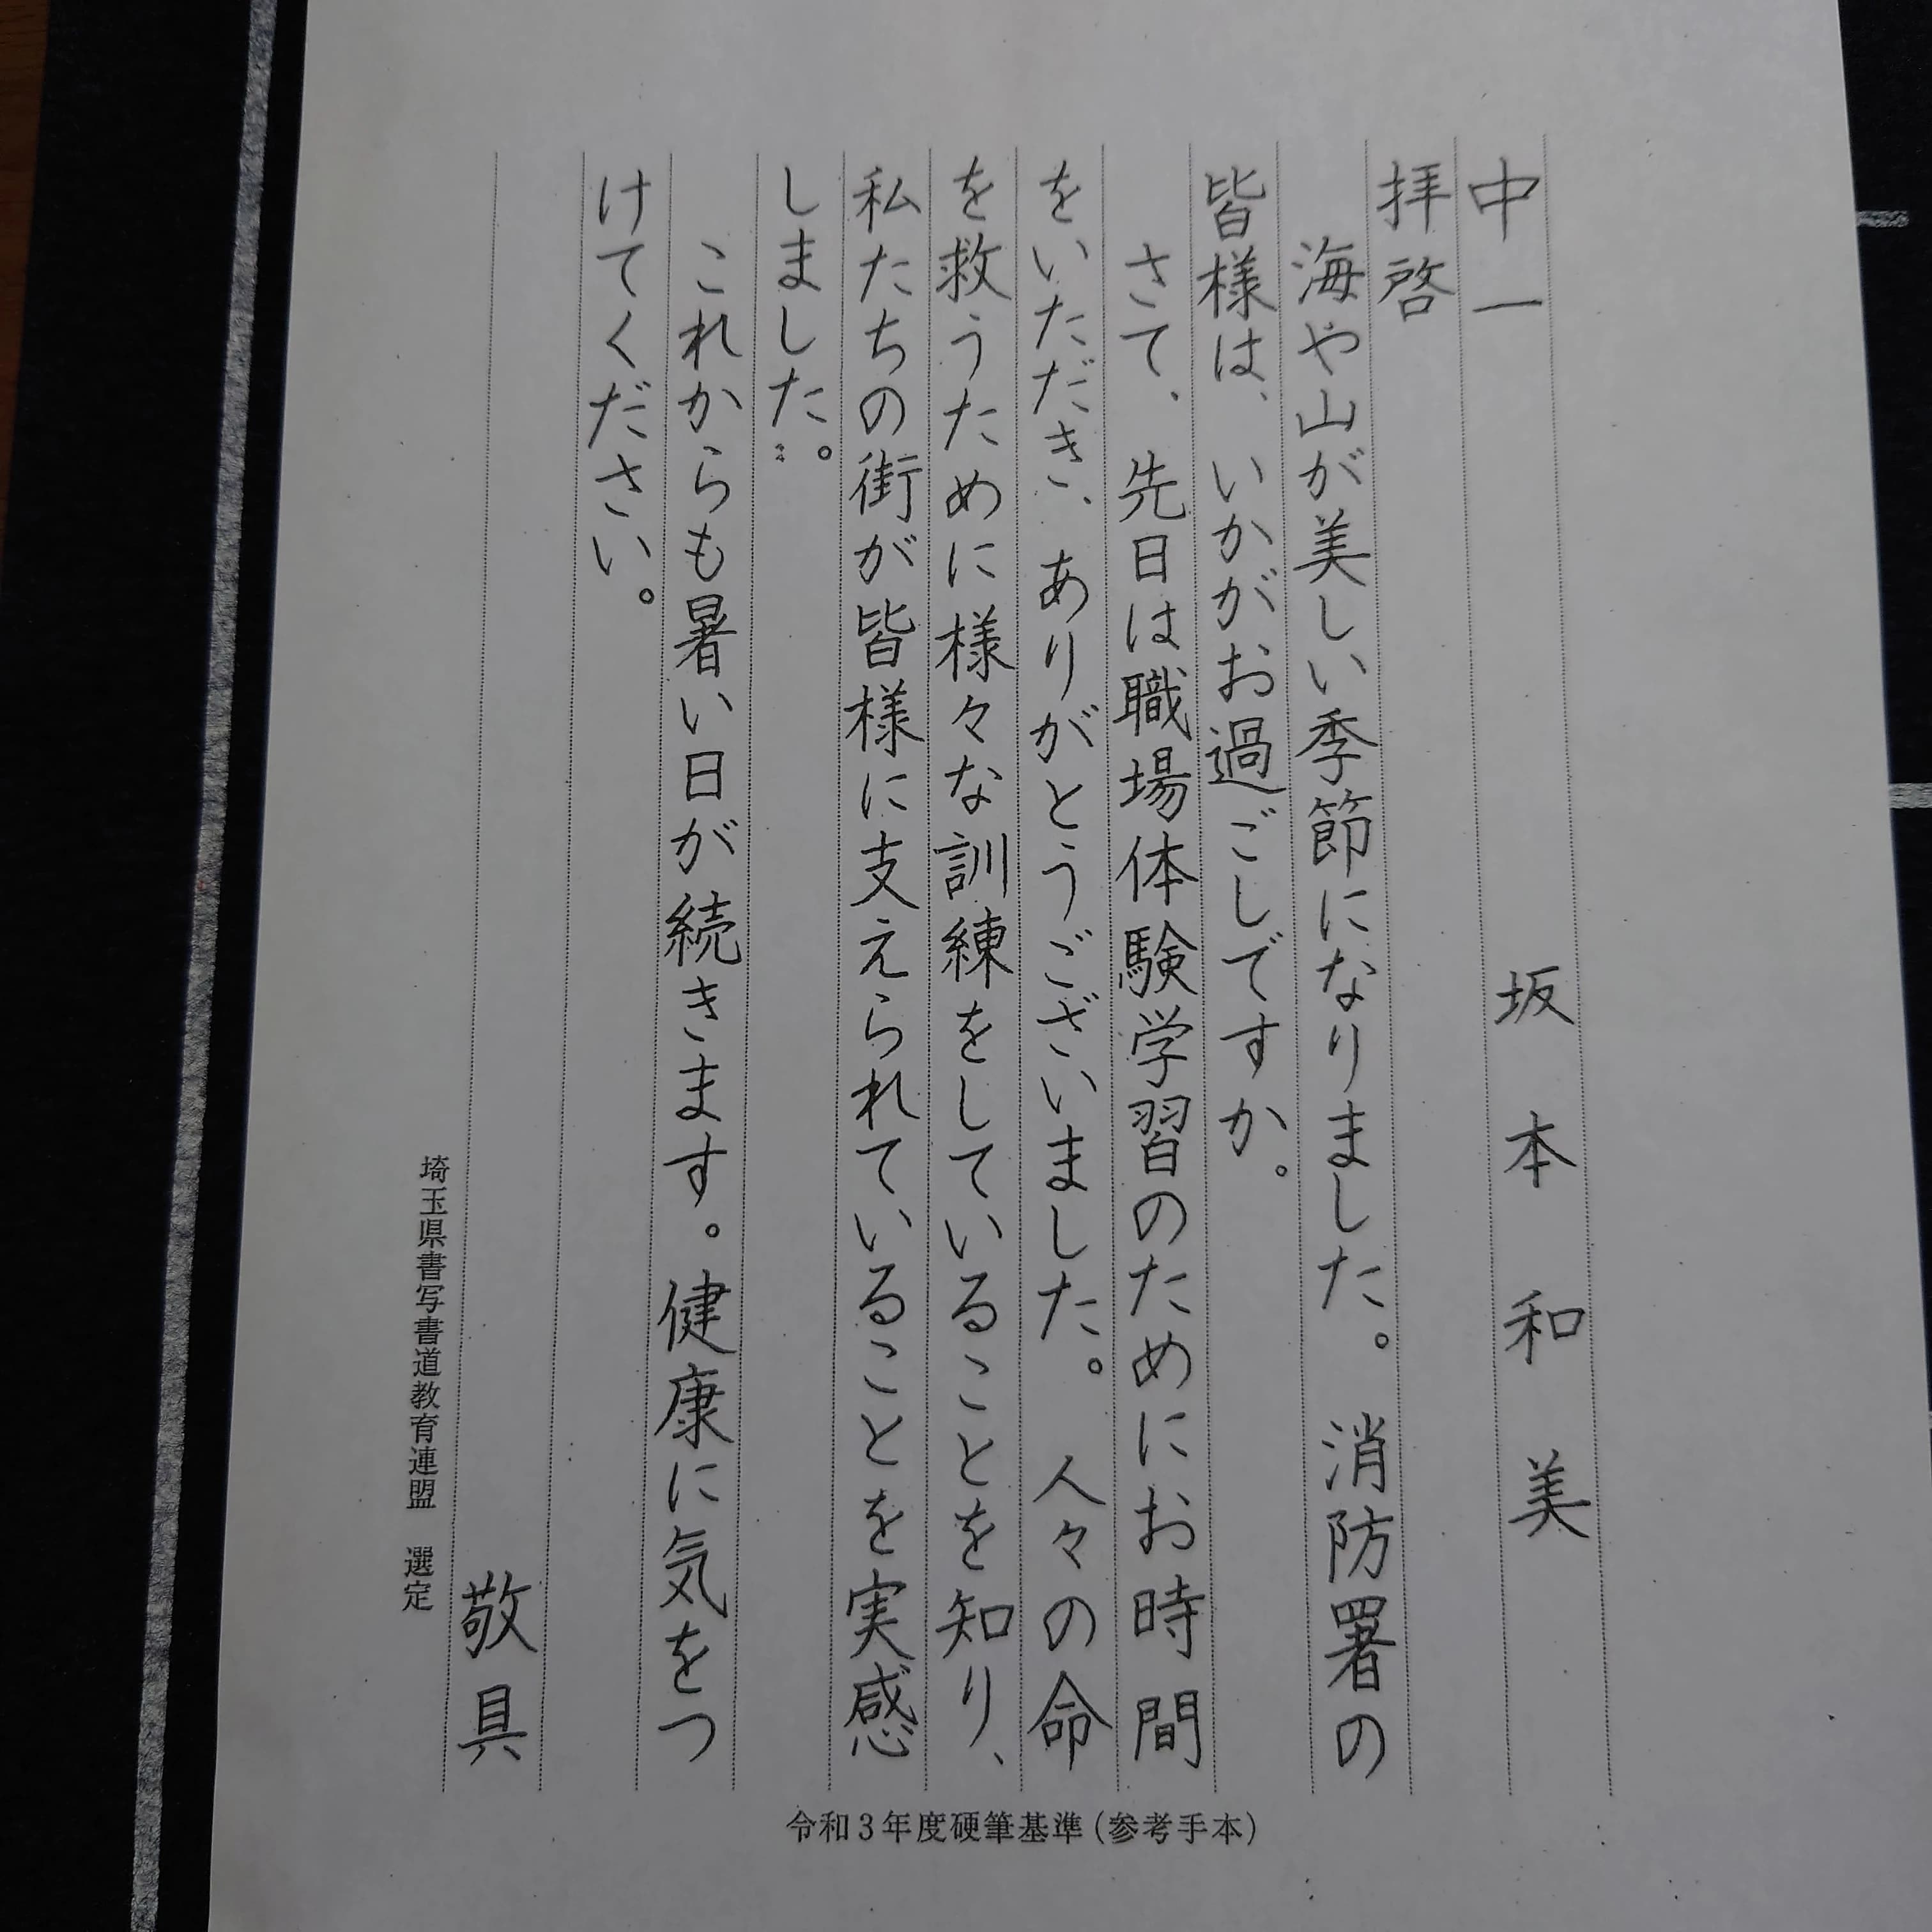 中一 坂本和美
拝啓
海や山が美しい季節になりました。消防署の
皆様は、いかがお過ごしですか。
さて、先日は職場体験学習のためにお時間
をいただき、ありがとうございました。人々の命
を救うために様々な訓練をしていることを知り、
私たちの街が皆様に支えられていることを実感
しました。
これからも暑い日が続きます。健康に気をつ
けてください。
敬具
埼玉県書写書道教育連盟 選定
令和3年度硬筆基準(参考手本)